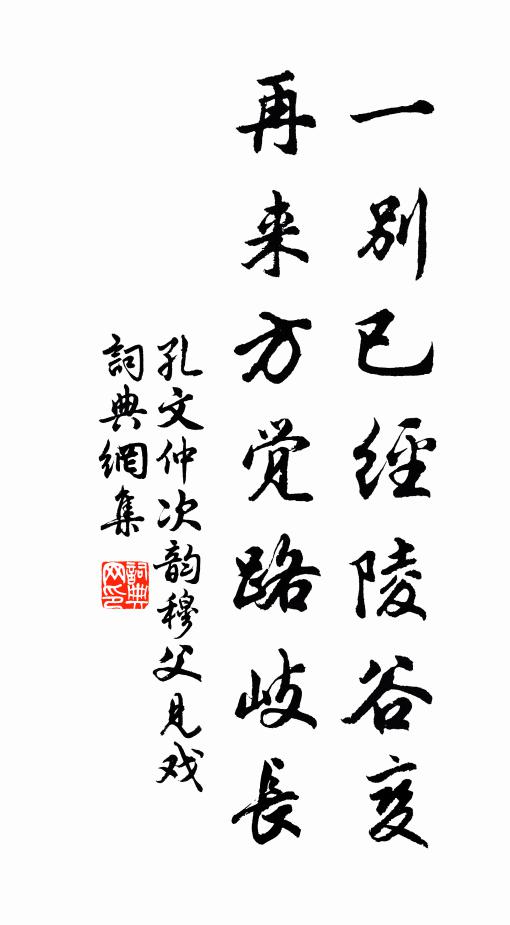 一别已經陵谷变
再来方觉路岐長
孔文仲次韵穆父見戏
詞典網集
詞典网印